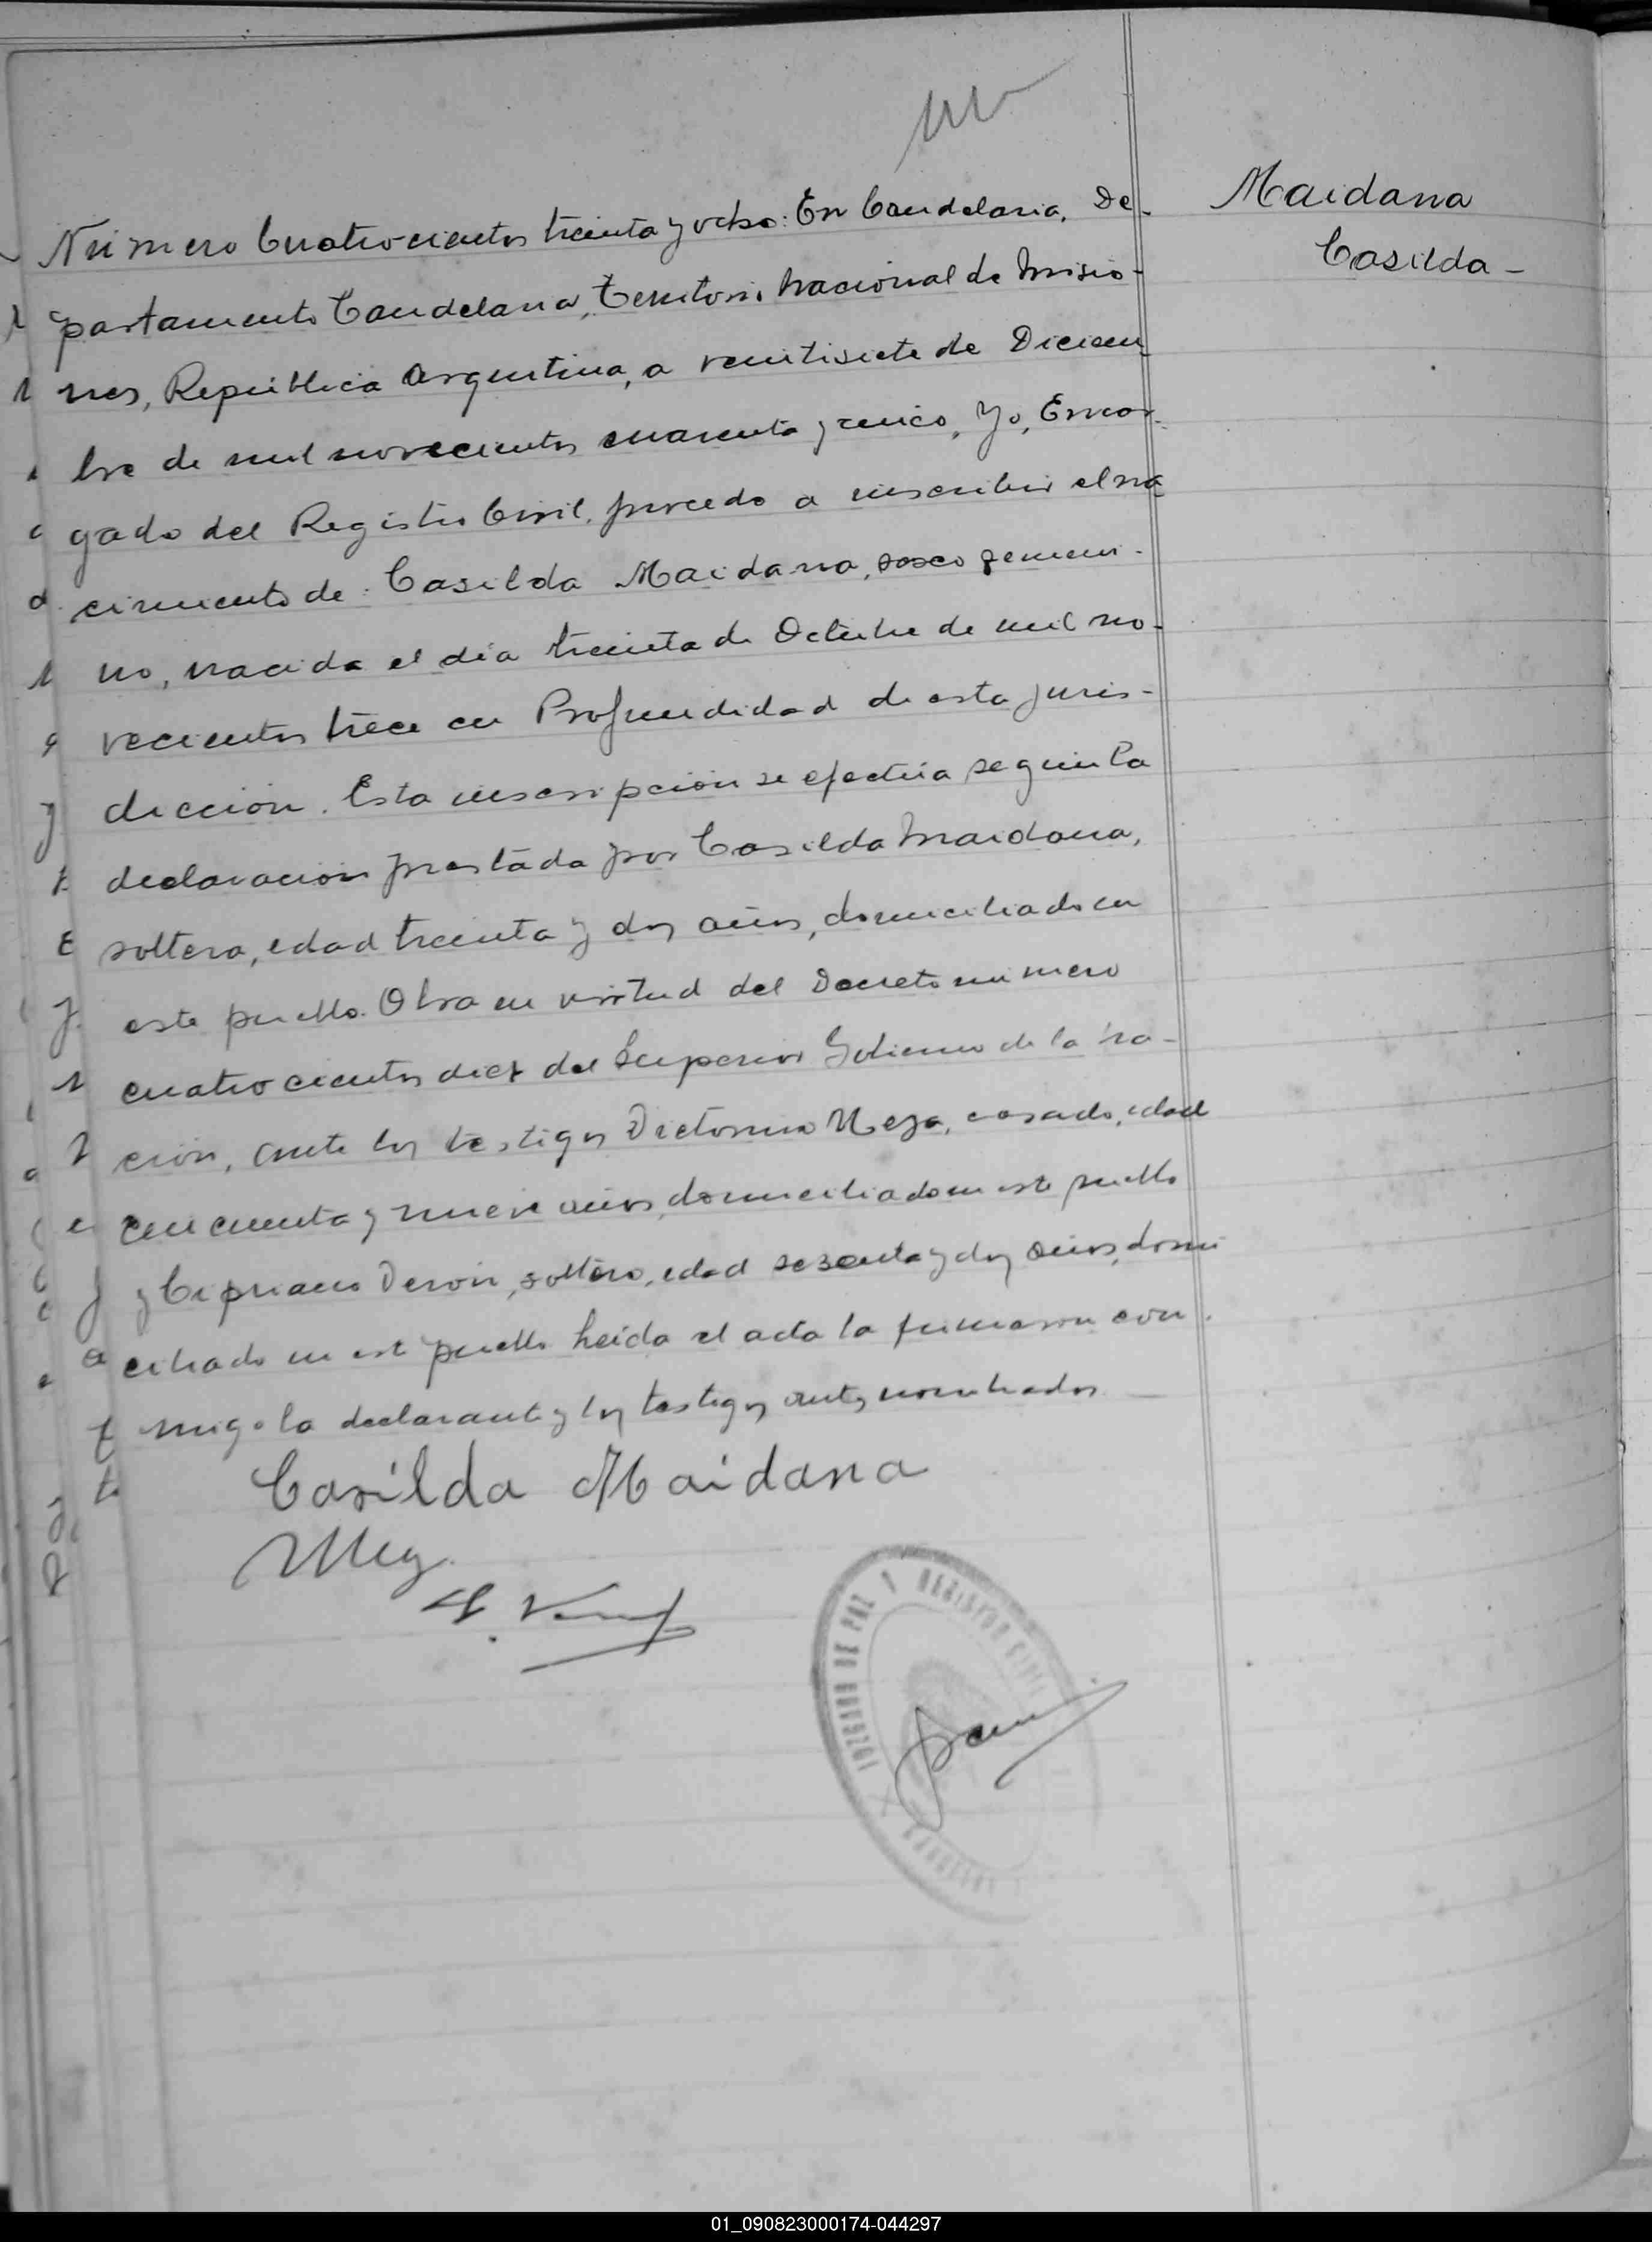 Maidana
Casilda -
Número Cuatrocientos treinta y ocho: En Candelaria, De-
partamento Candelaria, Territorio Nacional de Misio-
nes, República Argentina, a veintisiete de Diciem-
bre de mil novecientos cuarenta y cinco, Yo, Encar-
gado del Registro Civil, procedo a inscribir el na-
cimiento de: Casilda Maidana, sexo femeni-
no, nacida el día treinta de Octubre de mil no-
vecientos trece en Profundidad de esta juris-
dicción. Esta inscripción se efectúa según la
declaración prestada por Casilda Maidana,
soltera, edad treinta y dos años, domiciliado en
este pueblo. Obra en virtud del Decreto número
cuatrocientos diez del Superior Gobierno de la Na-
ción, ante los testigos Victorino Meza, casado, edad
cincuenta y nueve años, domiciliado en este pueblo
y Cipriano Verón, soltero, edad sesenta y dos años, domi
ciliado en este pueblo. Leída el acta la firmaron con-
migo la declarante y los testigos antes nombrados. —
Casilda Maidana
JUZGADO DE PAZ Y REGISTRO CIVIL
01_090823000174-044297